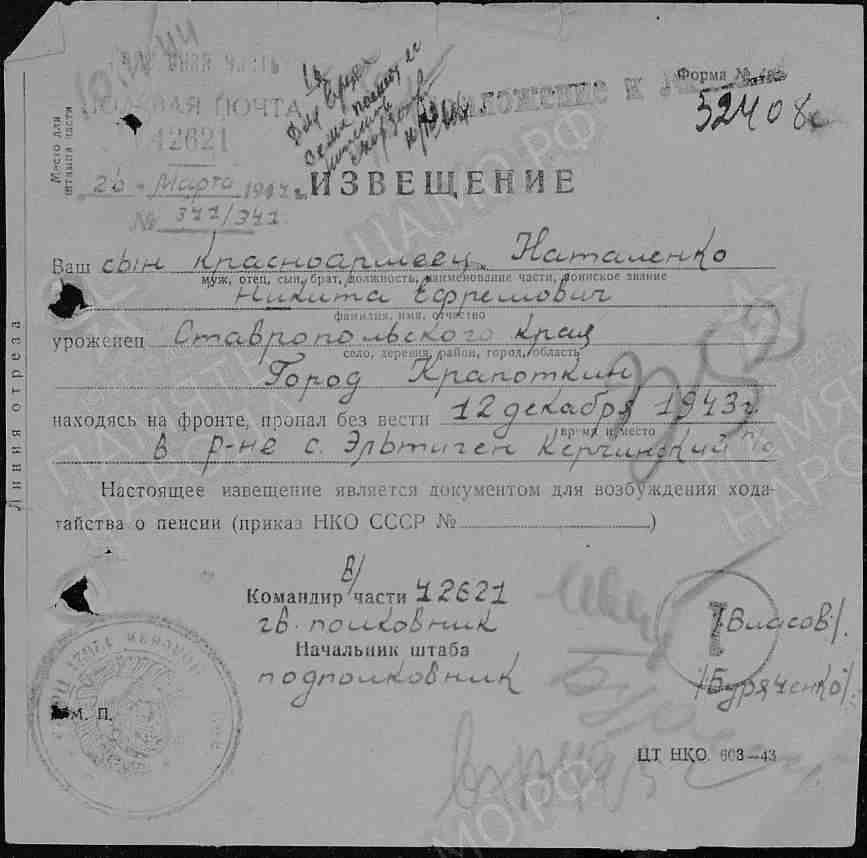 Форма №
52408с
ПОЛЕВАЯ ПОЧТА
Приложение к
Место для
штампа части
42621
"26" Марта 1944 г.
ИЗВЕЩЕНИЕ
№ 341/341
Ваш сын красноармеец Наталенко
муж, отец, сын, брат, должность, наименование части, воинское звание
Никита Ефремович
фамилия, имя, отчество
уроженец Ставропольского края
село, деревня, район, город, область
Город Крапоткин
находясь на фронте, пропал без вести 12 декабря 1943 г.
время и место
в р-не с. Эльтиген Керчинский п/о
Линия отреза
Настоящее извещение является документом для возбуждения хода-
тайства о пенсии (приказ НКО СССР № )
В/
Командир части 42621
гв. полковник /Власов/.
Начальник штаба
подполковник /Буряченко/.
М. П.
ЦТ НКО. 603—43